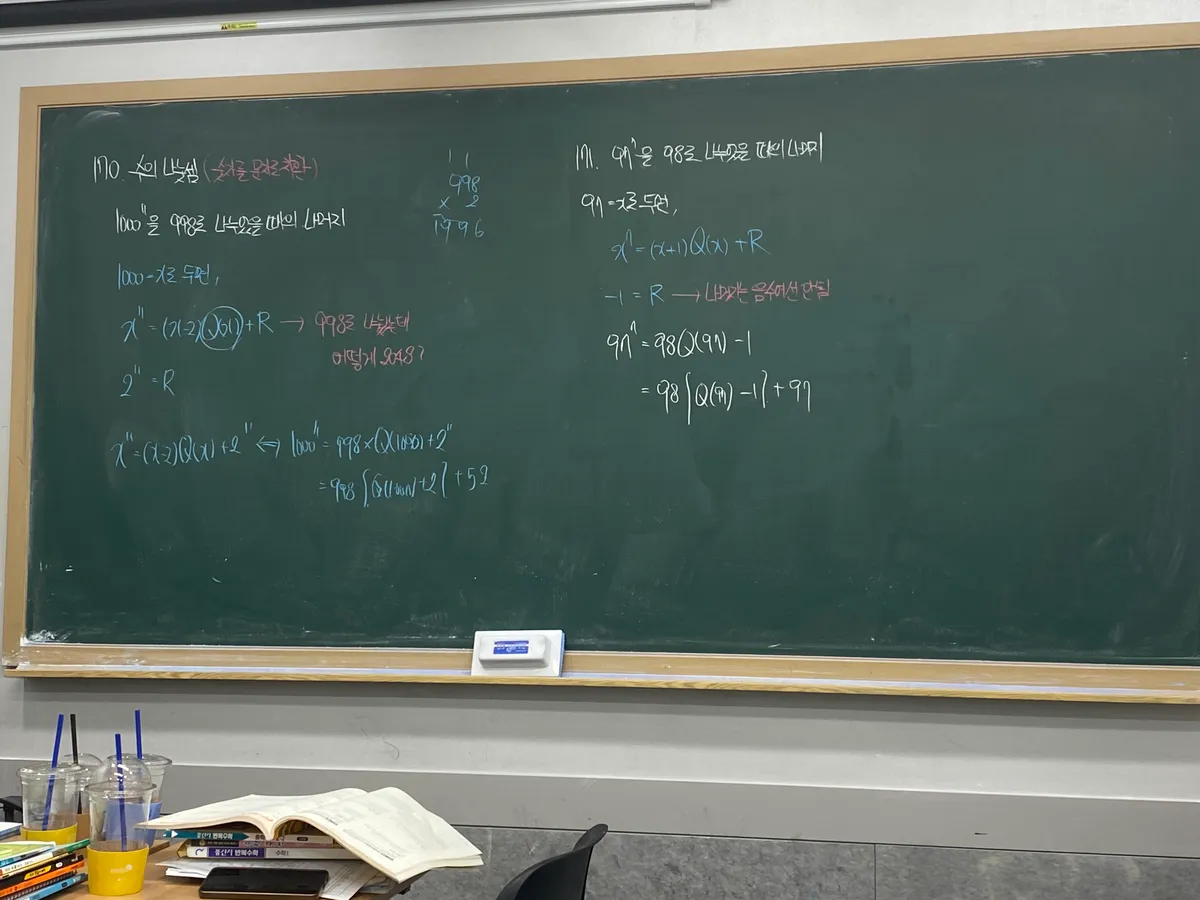 170. 수의 나눗셈 (숫자를 문자로 치환)
1000¹¹을 998로 나누었을 때의 나머지
1000=x로 두면,
x¹¹=(x-2)Q(x)+R → 998로 나눴는데
어떻게 2048?
2¹¹ = R
x¹¹=(x-2)Q(x)+2¹¹ ⇔ 1000¹¹=998×Q(1000)+2¹¹
=998{Q(1000)+2}+52
1 1
998
× 2
1996
171. 97¹¹을 98로 나누었을 때의 나머지
97=x로 두면,
x¹¹=(x+1)Q(x)+R
-1 = R → 나머지는 음수여선 안됨
97¹¹=98Q(97)-1
=98{Q(97)-1}+97
풍산자 반복수학
풍산자 반복수학 수학Ⅰ